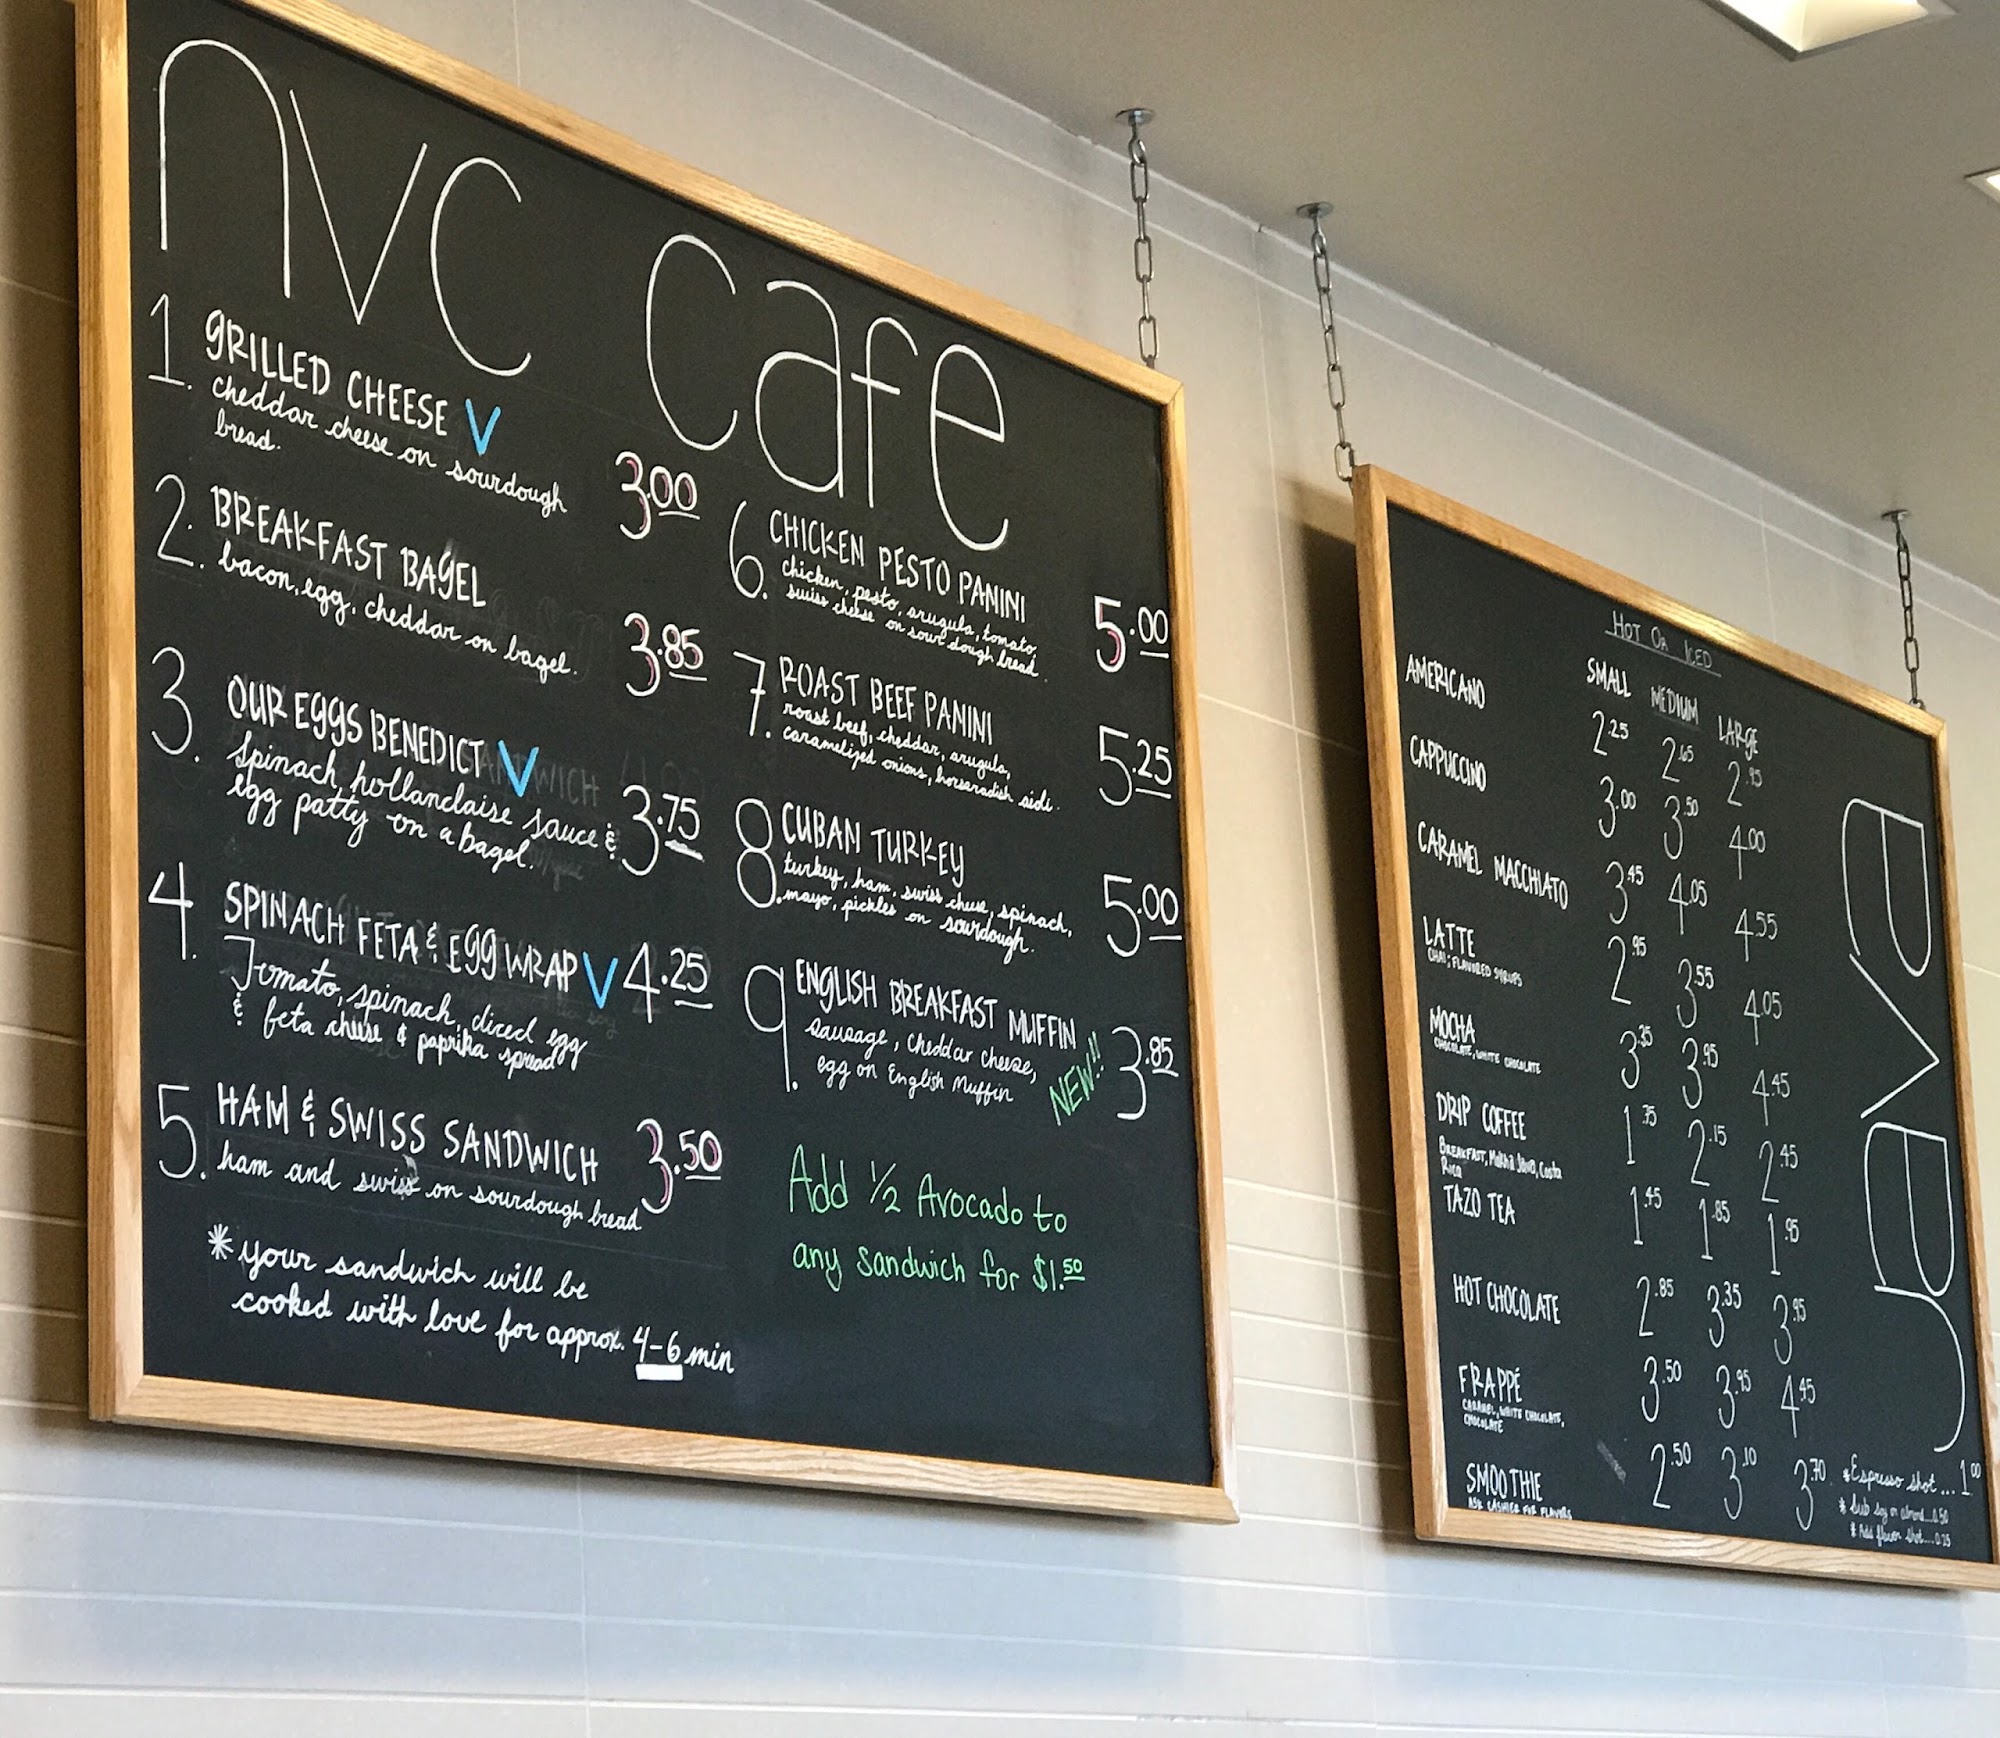 nvc cafe
1. GRILLED CHEESE V
cheddar cheese on sourdough
bread.
3.00
2. BREAKFAST BAGEL
bacon, egg, cheddar on bagel.
3.85
3. OUR EGGS BENEDICT V
Spinach, hollandaise sauce &
egg patty on a bagel.
3.75
4. SPINACH FETA & EGG WRAP V 4.25
Tomato, spinach, diced egg
& feta cheese & paprika spread
5. HAM & SWISS SANDWICH
ham and swiss on sourdough bread
3.50
* your sandwich will be
cooked with love for approx. 4-6 min
6. CHICKEN PESTO PANINI
chicken, pesto, arugula, tomato,
swiss cheese on sour dough bread.
5.00
7. ROAST BEEF PANINI
roast beef, cheddar, arugula,
caramelized onions, horseradish aioli.
5.25
8. CUBAN TURKEY
turkey, ham, swiss cheese, spinach,
mayo, pickles on sourdough.
5.00
9. ENGLISH BREAKFAST MUFFIN
sausage, cheddar cheese,
egg on English Muffin
NEW!! 3.85
Add 1/2 Avocado to
any sandwich for $1.50
HOT OR ICED
SMALL MEDIUM LARGE
AMERICANO 2.25 2.65 2.95
CAPPUCCINO 3.00 3.50 4.00
CARAMEL MACCHIATO 3.45 4.05 4.55
LATTE 2.95 3.55 4.05
CHAI; FLAVORED SYRUPS
MOCHA 3.35 3.95 4.45
CHOCOLATE, WHITE CHOCOLATE
DRIP COFFEE 1.35 2.15 2.45
BREAKFAST, Mokha Java, Costa
Rica
TAZO TEA 1.45 1.85 1.95
HOT CHOCOLATE 2.85 3.35 3.95
FRAPPÉ 3.50 3.95 4.45
CARAMEL, WHITE CHOCOLATE,
CHOCOLATE
SMOOTHIE 2.50 3.10 3.70
ASK CASHIER FOR FLAVORS
* Espresso shot... 1.00
* Sub soy or almond...0.50
* Add flavor shot....0.25